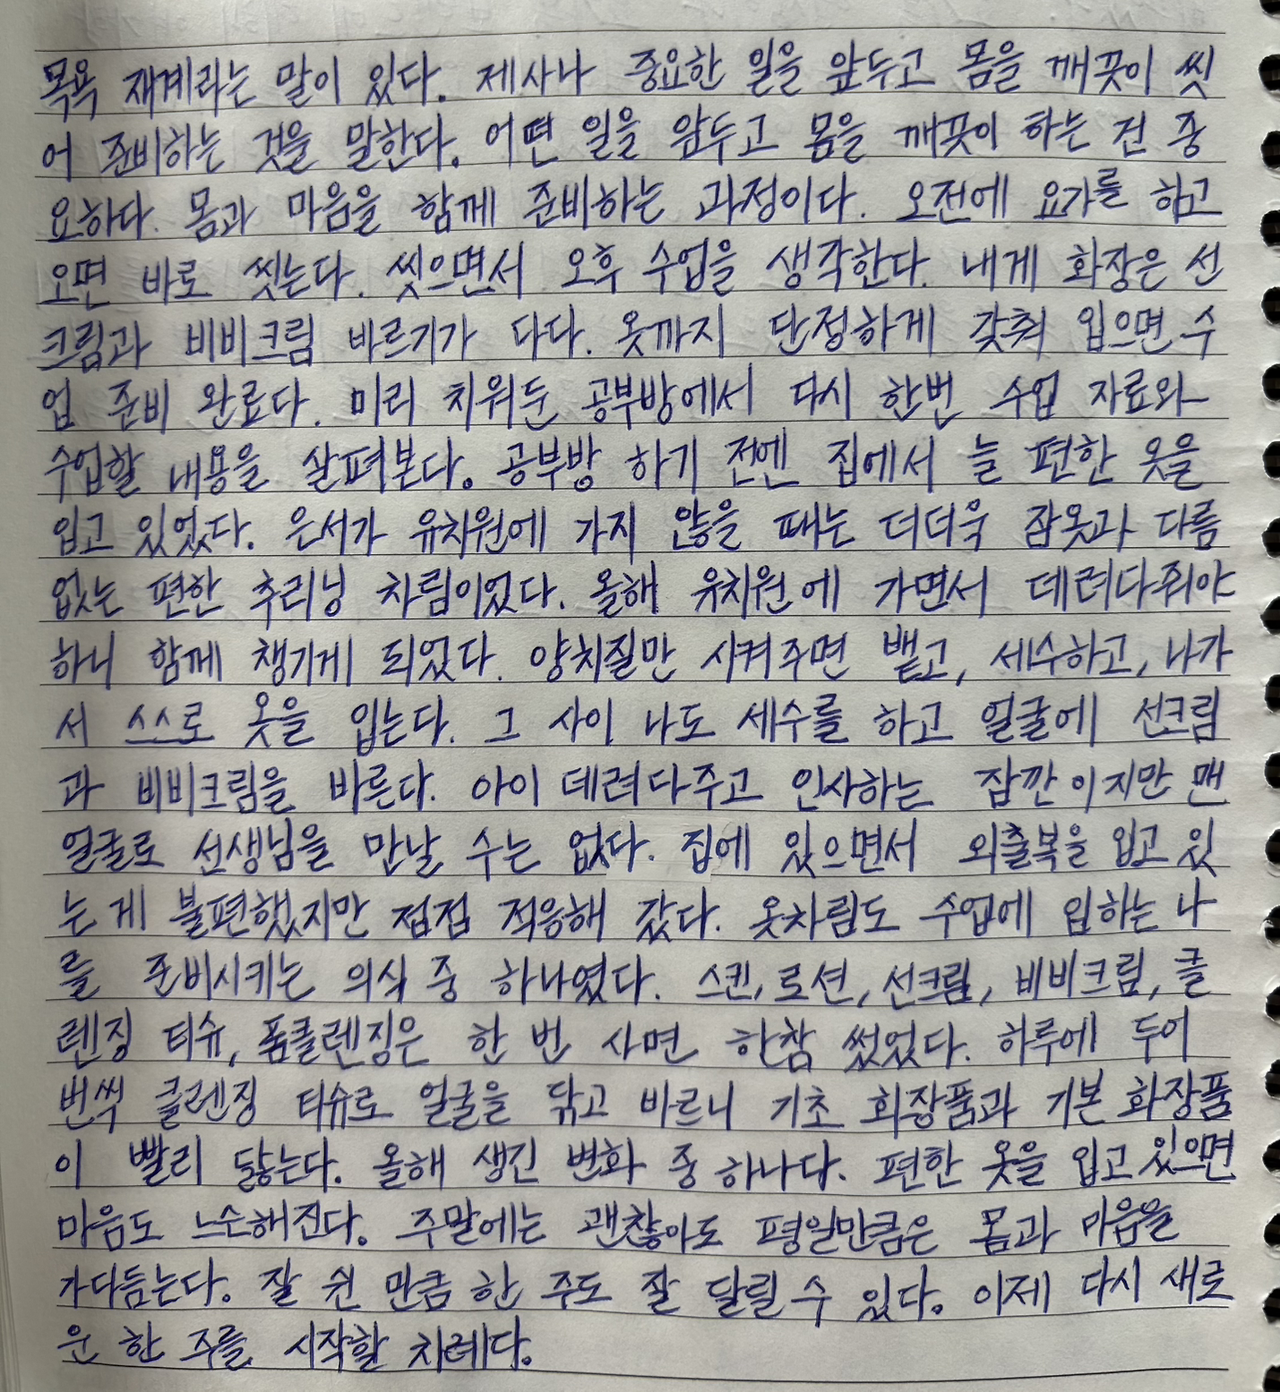 목욕 재계라는 말이 있다. 제사나 중요한 일을 앞두고 몸을 깨끗이 씻
어 준비하는 것을 말한다. 어떤 일을 앞두고 몸을 깨끗이 하는 건 중
요하다. 몸과 마음을 함께 준비하는 과정이다. 오전에 요가를 하고
오면 바로 씻는다. 씻으면서 오후 수업을 생각한다. 내게 화장은 선
크림과 비비크림 바르기가 다다. 옷까지 단정하게 갖춰 입으면 수
업 준비 완료다. 미리 치워둔 공부방에서 다시 한번 수업 자료와
수업할 내용을 살펴본다. 공부방 하기 전엔 집에서 늘 편한 옷을
입고 있었다. 은서가 유치원에 가지 않을 때는 더더욱 잠옷과 다름
없는 편한 추리닝 차림이었다. 올해 유치원에 가면서 데려다줘야
하니 함께 챙기게 되었다. 양치질만 시켜주면 뱉고, 세수하고, 나가
서 스스로 옷을 입는다. 그 사이 나도 세수를 하고 얼굴에 선크림
과 비비크림을 바른다. 아이 데려다주고 인사하는 잠깐이지만 맨
얼굴로 선생님을 만날 수는 없다. 집에 있으면서 외출복을 입고 있
는게 불편했지만 점점 적응해 갔다. 옷차림도 수업에 임하는 나
를 준비시키는 의식 중 하나였다. 스킨, 로션, 선크림, 비비크림, 클
렌징 티슈, 폼클렌징은 한 번 사면 한참 썼었다. 하루에 두어
번씩 클렌징 티슈로 얼굴을 닦고 바르니 기초 화장품과 기본 화장품
이 빨리 닳는다. 올해 생긴 변화 중 하나다. 편한 옷을 입고 있으면
마음도 느슨해진다. 주말에는 괜찮아도 평일만큼은 몸과 마음을
가다듬는다. 잘 쉰 만큼 한 주도 잘 달릴 수 있다. 이제 다시 새로
운 한 주를 시작할 차례다.